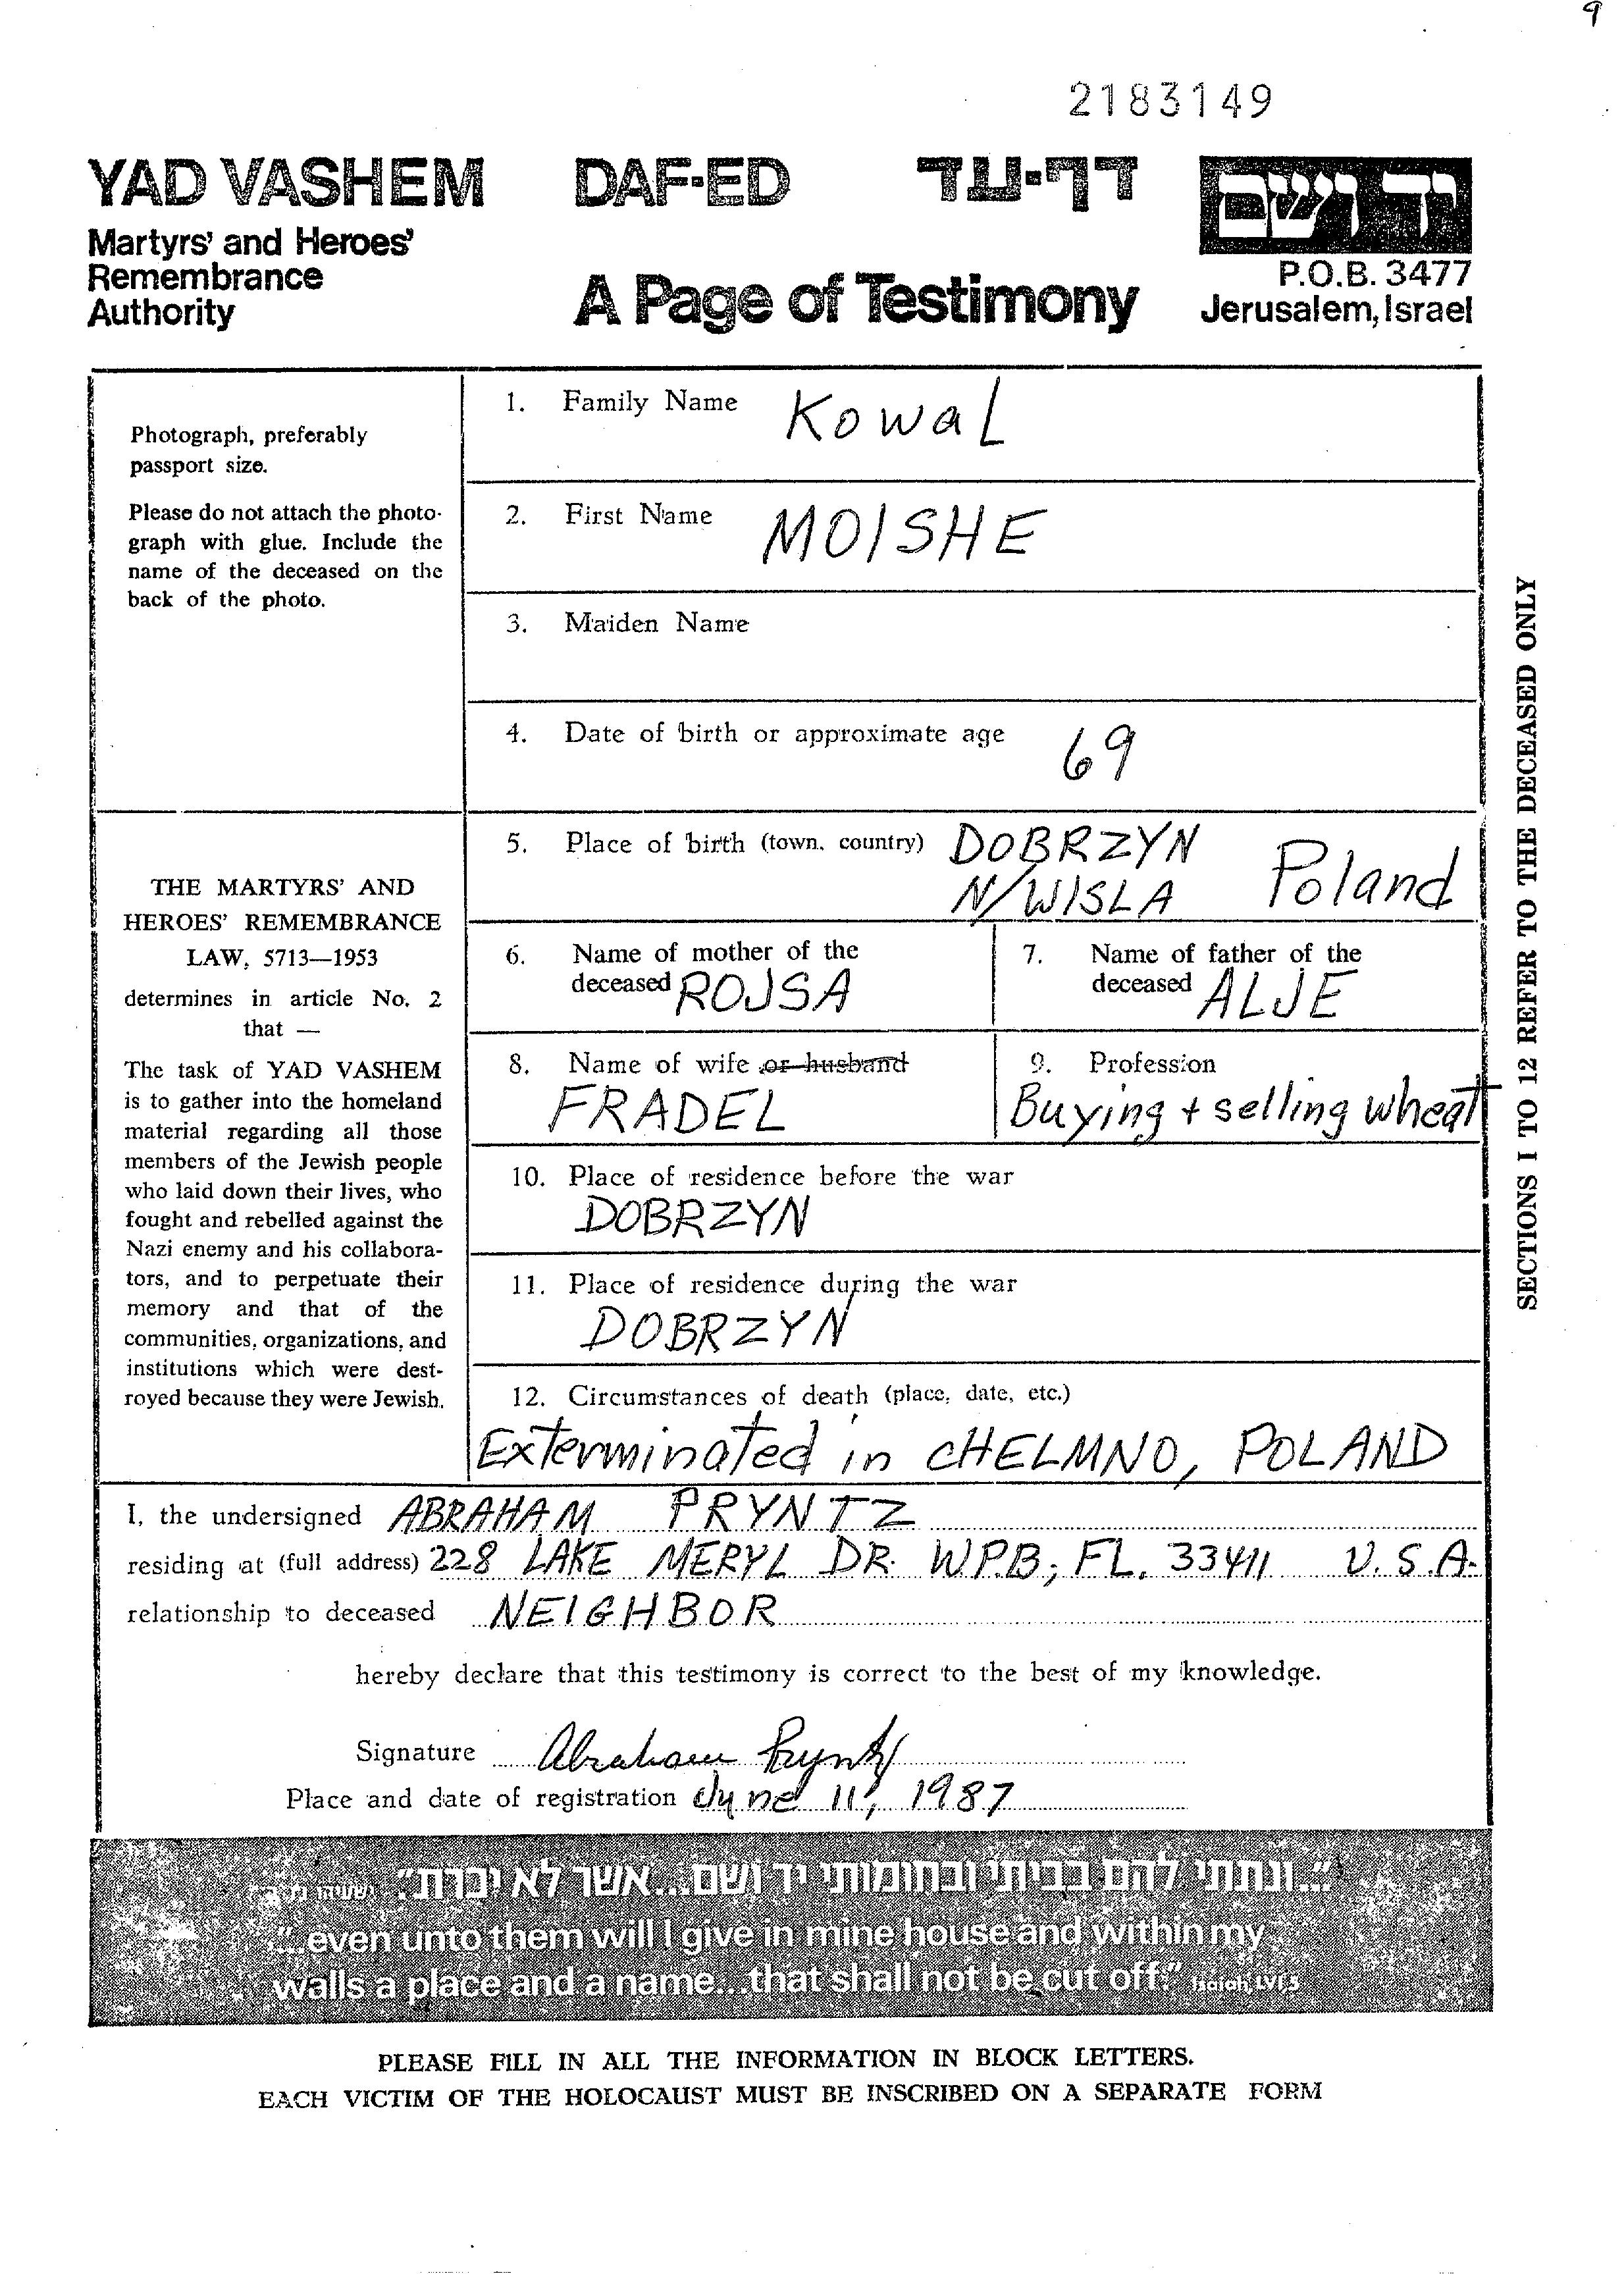 9
2183149
YAD VASHEM DAF-ED דף-עד יד ושם
Martyrs' and Heroes'
Remembrance
Authority
A Page of Testimony
P.O.B. 3477
Jerusalem, Israel
Photograph, preferably
passport size.
Please do not attach the photo-
graph with glue. Include the
name of the deceased on the
back of the photo.
THE MARTYRS' AND
HEROES' REMEMBRANCE
LAW, 5713—1953
determines in article No. 2
that —
The task of YAD VASHEM
is to gather into the homeland
material regarding all those
members of the Jewish people
who laid down their lives, who
fought and rebelled against the
Nazi enemy and his collabora-
tors, and to perpetuate their
memory and that of the
communities, organizations, and
institutions which were dest-
royed because they were Jewish.
1. Family Name KowaL
2. First Name MOISHE
3. Maiden Name
4. Date of birth or approximate age 69
5. Place of birth (town, country) DOBRZYN
N/WISLA Poland
6. Name of mother of the
deceased ROJSA
7. Name of father of the
deceased ALJE
8. Name of wife or husband
FRADEL
9. Profession
Buying + selling wheat
10. Place of residence before the war
DOBRZYN
11. Place of residence during the war
DOBRZYN
12. Circumstances of death (place, date, etc.)
Exterminated in CHELMNO, POLAND
SECTIONS 1 TO 12 REFER TO THE DECEASED ONLY
I, the undersigned ABRAHAM PRYNTZ
residing at (full address) 228 LAKE MERYL DR. W.P.B; FL. 33411 U.S.A.
relationship to deceased NEIGHBOR
hereby declare that this testimony is correct to the best of my knowledge.
Signature Abraham Pryntz
Place and date of registration June 11, 1987
"...ונתתי להם בביתי ובחומותי יד ושם...אשר לא יכרת".
"...even unto them will I give in mine house and within my
walls a place and a name...that shall not be cut off." Isaiah, LVI,5
PLEASE FILL IN ALL THE INFORMATION IN BLOCK LETTERS.
EACH VICTIM OF THE HOLOCAUST MUST BE INSCRIBED ON A SEPARATE FORM